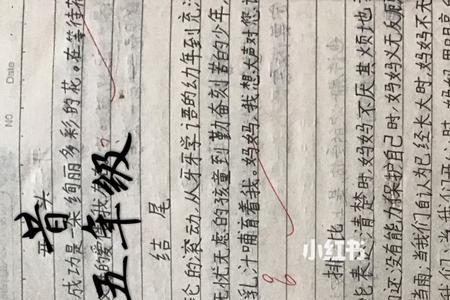 NO
Date
头
昔
成功是一朵绚丽多彩的花。在等待花
五年级
结尾
轮的滚动,从牙牙学语的幼年到充
无忧无虑的孩童到勤奋刻苦的少年,
乳汁哺育着我。妈妈,我想大声对您
排比
小红书
表达不清楚时,妈妈不厌其烦地
还没有能力保护自己时,妈妈义无反
雨;当我们自认为已经长大时,妈妈不